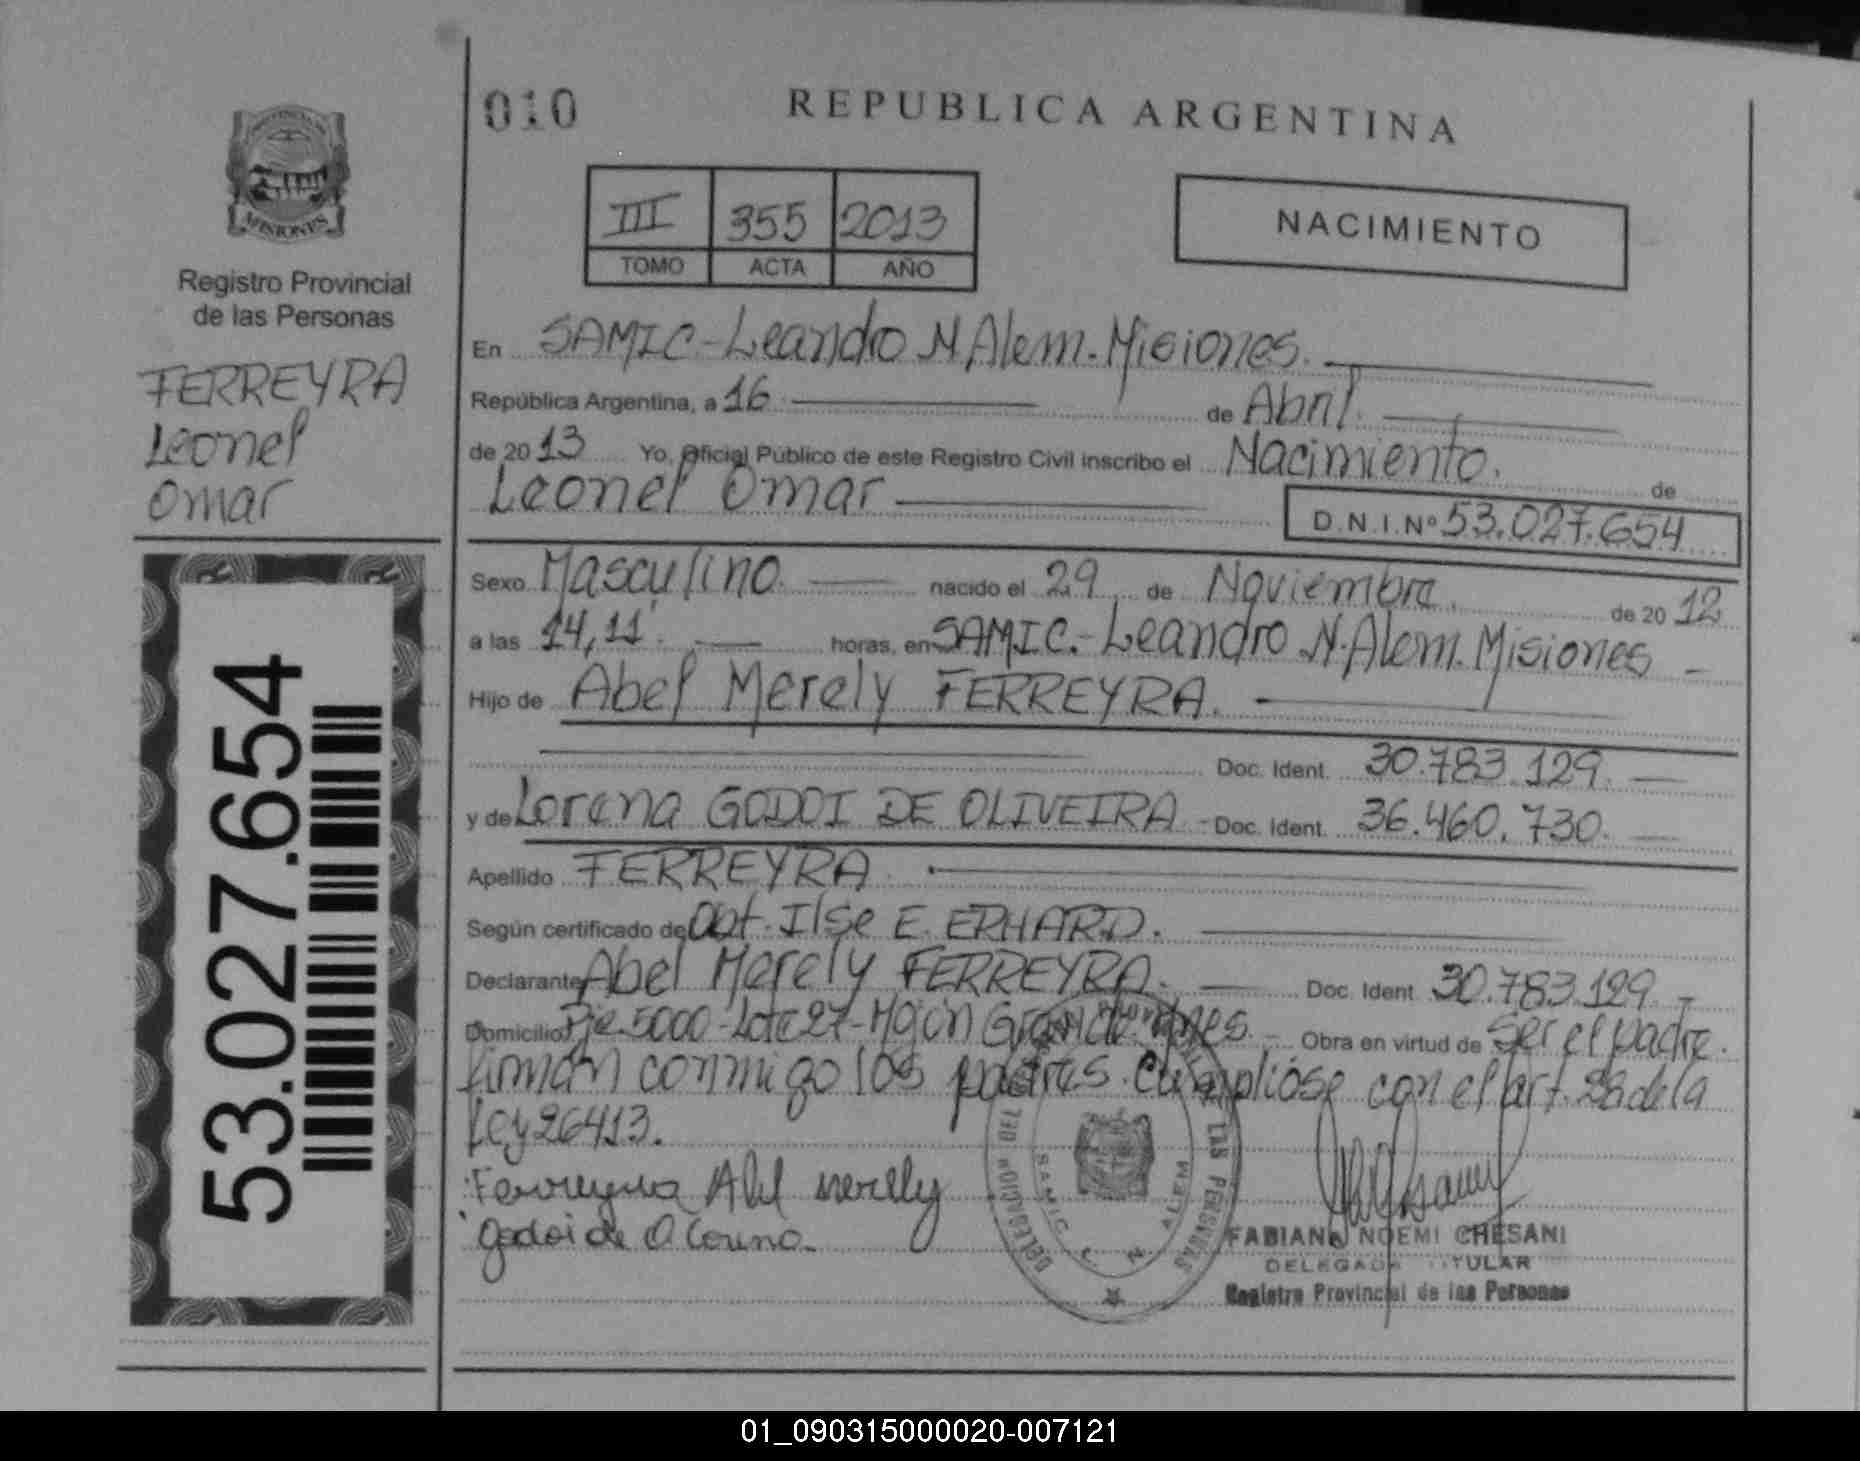 010
REPUBLICA ARGENTINA
PROVINCIA DE
MISIONES
Registro Provincial
de las Personas
FERREYRA
Leonel
Omar
53.027.654
III 355 2013
TOMO ACTA AÑO
NACIMIENTO
En SAMIC-Leandro N.Alem.Misiones.
República Argentina, a 16 de Abril.
de 2013 Yo, Oficial Público de este Registro Civil inscribo el Nacimiento. de
Leonel Omar
D.N.I.Nº 53.027.654
Sexo Masculino. nacido el 29 de Noviembre. de 2012
a las 14,11'. horas, en SAMIC.-Leandro N.Alem.Misiones
Hijo de Abel Merely FERREYRA.
Doc. Ident. 30.783.129.
y de Lorena GODOI DE OLIVEIRA - Doc. Ident. 36.460.730.
Apellido FERREYRA
Según certificado de Obt. Ilse E. ERHARD.
Declarante Abel Merely FERREYRA. Doc. Ident. 30.783.129
Domicilio Pje.5000-Lote27-Mojón Grande. Mnes. Obra en virtud de Ser el padre.
firman conmigo los padres. Cumplióse con el art. 28 de la
Ley 26413.
Ferreyra Abel merely
Godoi de O Lorena.
DELEGACION DEL REGISTRO PROVINCIAL DE LAS PERSONAS
SAMIC L. N. ALEM
FABIANA NOEMI CHESANI
DELEGADA TITULAR
Registro Provincial de las Personas
01_090315000020-007121